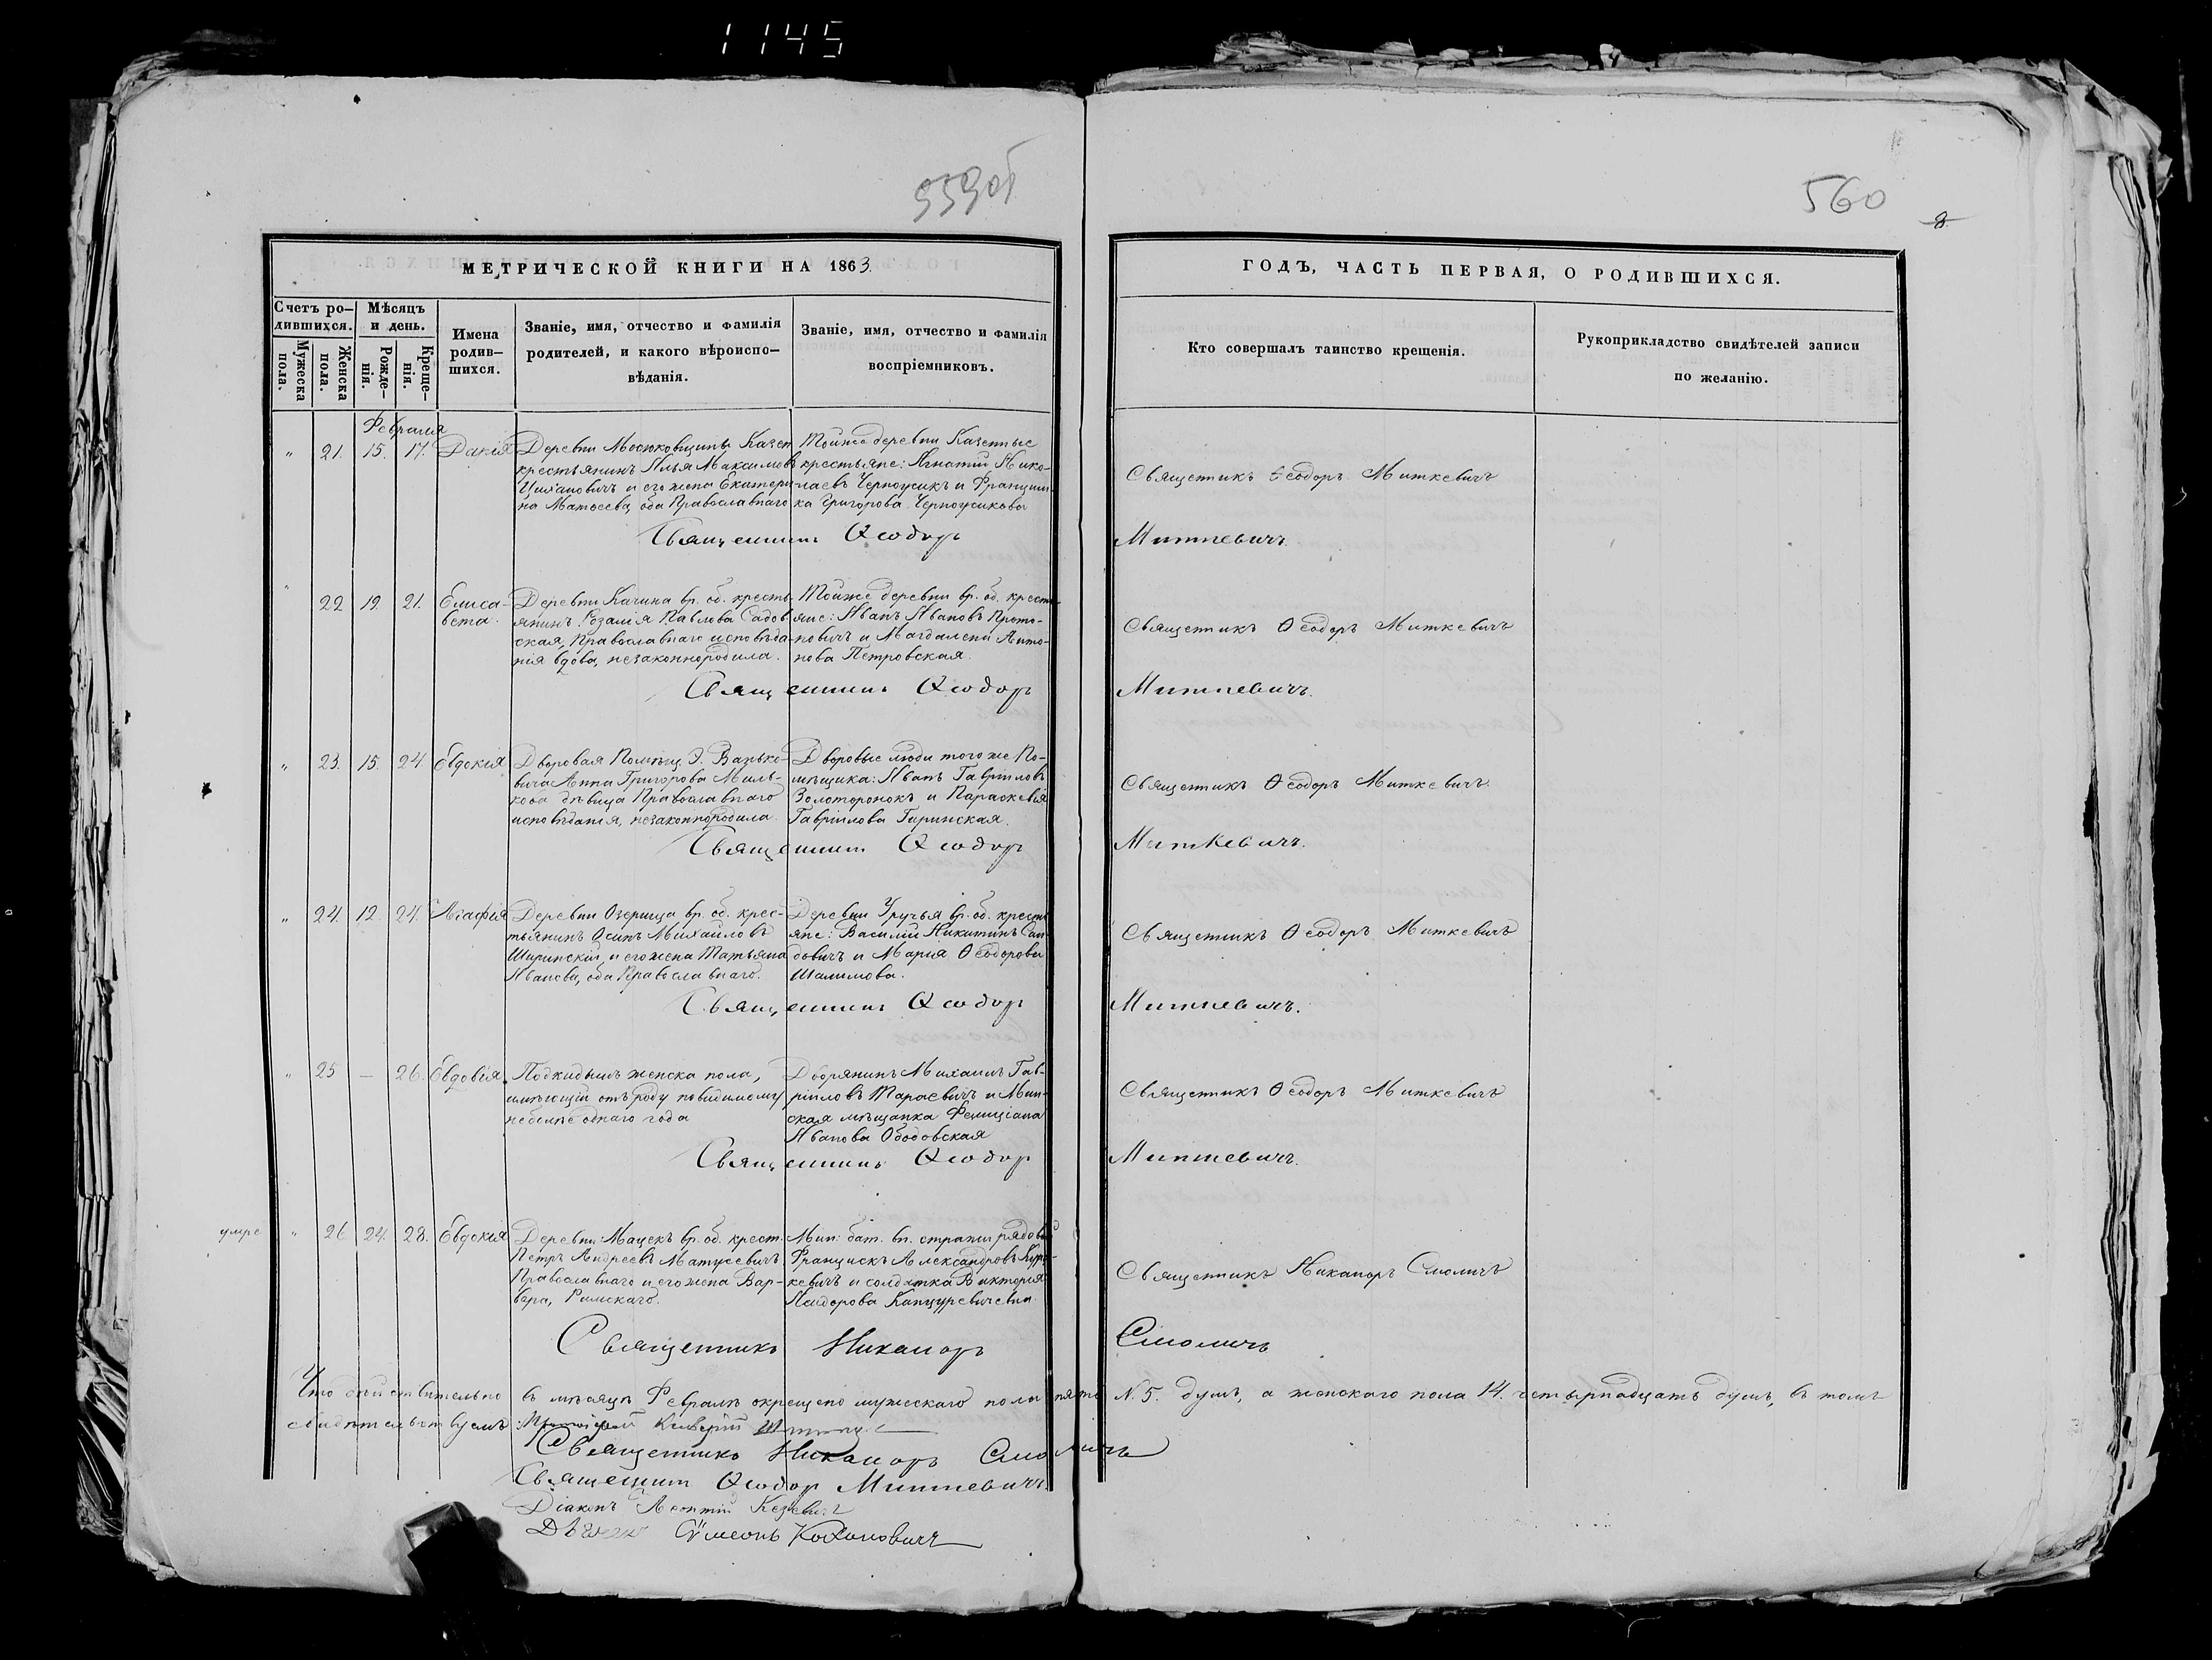 1145
559об
560
8.
МЕТРИЧЕСКОЙ КНИГИ НА 1863.
Счетъ ро-
дившихся.
Мужеска
пола.
Женска
пола.
Мѣсяцъ
и день.
Рожде-
нія.
Креще-
нія.
Имена
родив-
шихся.
Званіе, имя, отчество и фамилія
родителей, и какого вѣроиспо-
вѣданія.
Званіе, имя, отчество и фамилія
воспріемниковъ.
ГОДЪ, ЧАСТЬ ПЕРВАЯ, О РОДИВШИХСЯ.
Кто совершалъ таинство крещенія.
Рукоприкладство свидѣтелей записи
по желанію.
Февраля
" 21. 15. 17. Дарія
Деревни Мосюковщины Казен
крестьянинъ Илья Максимовъ
и его жена Екатери-
на Матѳеева, оба Православнаго
Тойже деревни Казенные
крестьяне: Игнатій Нико-
лаевъ Черноусикъ и Францишка
Григорова Черноусикова
Священникъ Ѳеодоръ Миткевичъ
Священникъ Ѳеодоръ Миткевичъ.
" 22 19. 21. Елиса-
вета.
Деревни Качина вр. об. кресть-
янинъ Розалія Павлова Садов
ская, Православнаго исповѣда-
нія вдова, незаконнородила.
Тойже деревни вр. об. кресть
яне: Иванъ Ивановъ Прото-
повичъ и Магдалена Анто-
нова Петровская.
Священникъ Ѳеодоръ Миткевичъ
Священникъ Ѳеодоръ Миткевичъ.
" 23. 15. 24 Евдокія
Дворовая Помѣщ. Э. Ванько-
вича Анна Григорова Миль-
кова дѣвица Православнаго
исповѣданія, незаконнородила.
Дворовые люди того же По-
мѣщика: Иванъ Гавріиловъ
Золоторонокъ и Параскевія
Гавріилова Гиринская.
Священникъ Ѳеодоръ Миткевичъ.
Священникъ Ѳеодоръ Миткевичъ.
" 24. 12. 24. Агафія
Деревни Озерища вр. об. крес-
тьянинъ Осипъ Михайловъ
Ширинскій и его жена Татьяна
Иванова, оба Православнаго.
Деревни Уручья вр. об. кресть
яне: Василій Никитинъ Сан-
довичъ и Марія Ѳеодорова
Шалимова.
Священникъ Ѳеодоръ Миткевичъ
Священникъ Ѳеодоръ Миткевичъ.
" 25 — 26. Евдокія
Подкидышъ женска пола,
имѣющій отъ роду повидимому
неболѣе однаго года
Дворянинъ Михаилъ Гав-
ріиловъ Тарасевичъ и Мин-
ская мѣщанка Фелиціана
Иванова Ободовская
Священникъ Ѳеодоръ Миткевичъ
Священникъ Ѳеодоръ Миткевичъ.
умре " 26 24. 28. Евдокія
Деревни Мацекъ вр. об. крест.
Петръ Андреевъ Матусевичъ
Православнаго и его жена Вар-
вара, Римскаго.
Мин: бат. вн. стражи рядовый
Францискъ Александровъ
и солдатка Викторія
Исидорова
Священникъ Никаноръ Смоличъ
Священникъ Никаноръ Смоличъ
Что дѣйствительно въ мѣсяцѣ Февралѣ окрещено мужескаго пола пять N. 5. душъ, а женскаго пола 14. четырнадцать душъ, въ томъ
свидѣтельствуемъ:
Священникъ Никаноръ Смоличъ
Священникъ Ѳеодоръ Миткевичъ.
Діаконъ Леонтій
Сѵмеонъ Кохановичъ